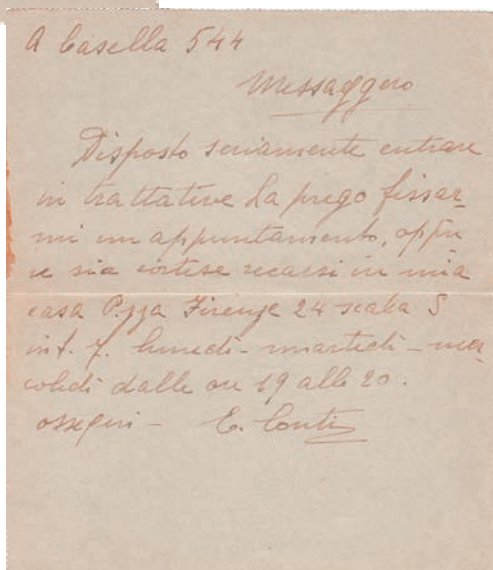 A Casella 544
Messaggero
Disposto seriamente entrare
in trattative La prego fissar-
mi un appuntamento, oppu-
re sia cortese recarsi in mia
casa P.zza Firenze 24 scala S
int. 7. lunedì - martedì - mer-
coledì dalle ore 19 alle 20.
ossequi - E. Conti